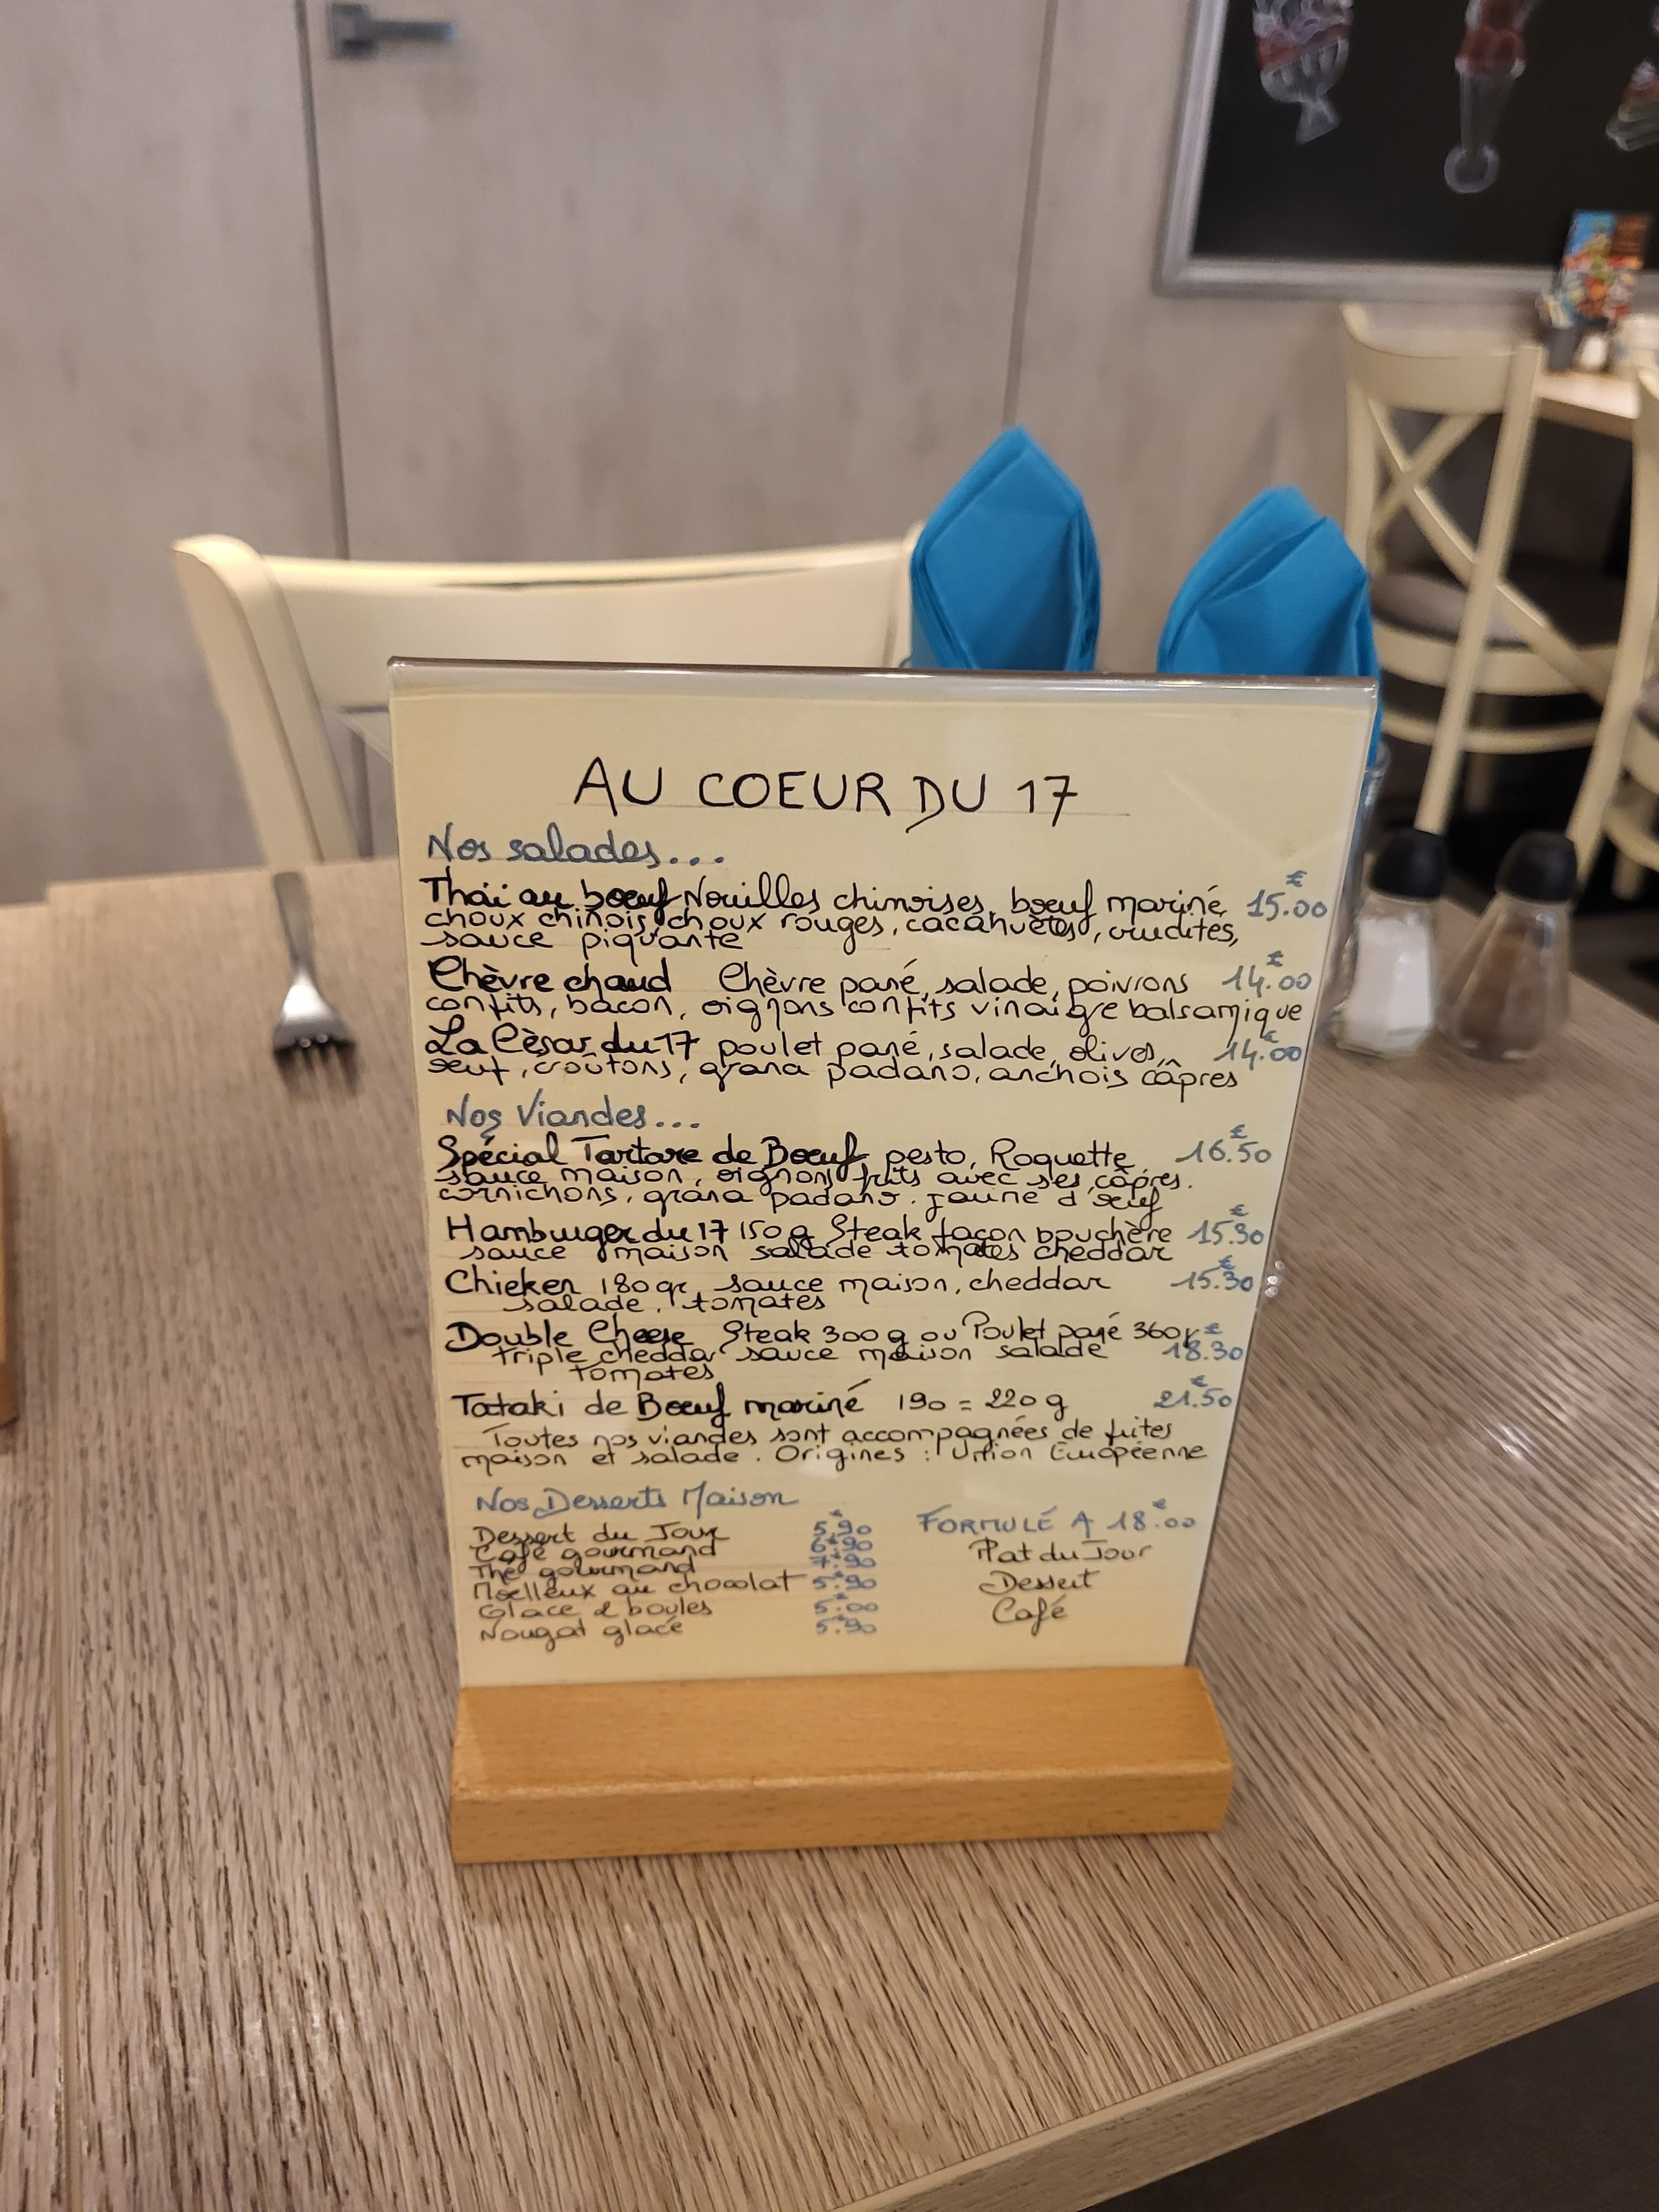 AU COEUR DU 17
Nos salades...
Thaï au bœuf Nouilles chinoises, bœuf mariné 15.00€
choux chinois, choux rouges, cacahuètes, crudités,
sauce piquante
Chèvre chaud Chèvre pané, salade, poivrons 14.00€
confits, bacon, oignons confits vinaigre balsamique
La Cèsar du 17 poulet pané, salade, olives, 14.00€
œuf, croûtons, grana padano, anchois câpres
Nos Viandes...
Spécial Tartare de Bœuf pesto, Roquette 16.50€
sauce maison, oignons frits avec ses câpres.
cornichons, grana padano. jaune d'œuf
Hamburger du 17 150g Steak façon bouchère 15.30€
sauce maison salade tomates cheddar
Chicken 180gr sauce maison, cheddar 15.30€
salade, tomates
Double Cheese Steak 300g ou Poulet pané 360gr €
triple cheddar sauce maison salade 18.30
tomates
Tataki de Bœuf mariné 190 = 220g 21.50€
Toutes nos viandes sont accompagnées de frites
maison et salade. Origines : Union Européenne
Nos Desserts Maison
Dessert du Jour 5.90€
Café gourmand 6.90€
Thé gourmand 7.90€
Moelleux au chocolat 5.90€
Glace 2 boules 5.00€
Nougat glacé 5.90€
FORMULÉ A 18.00€
Plat du Jour
Dessert
Café